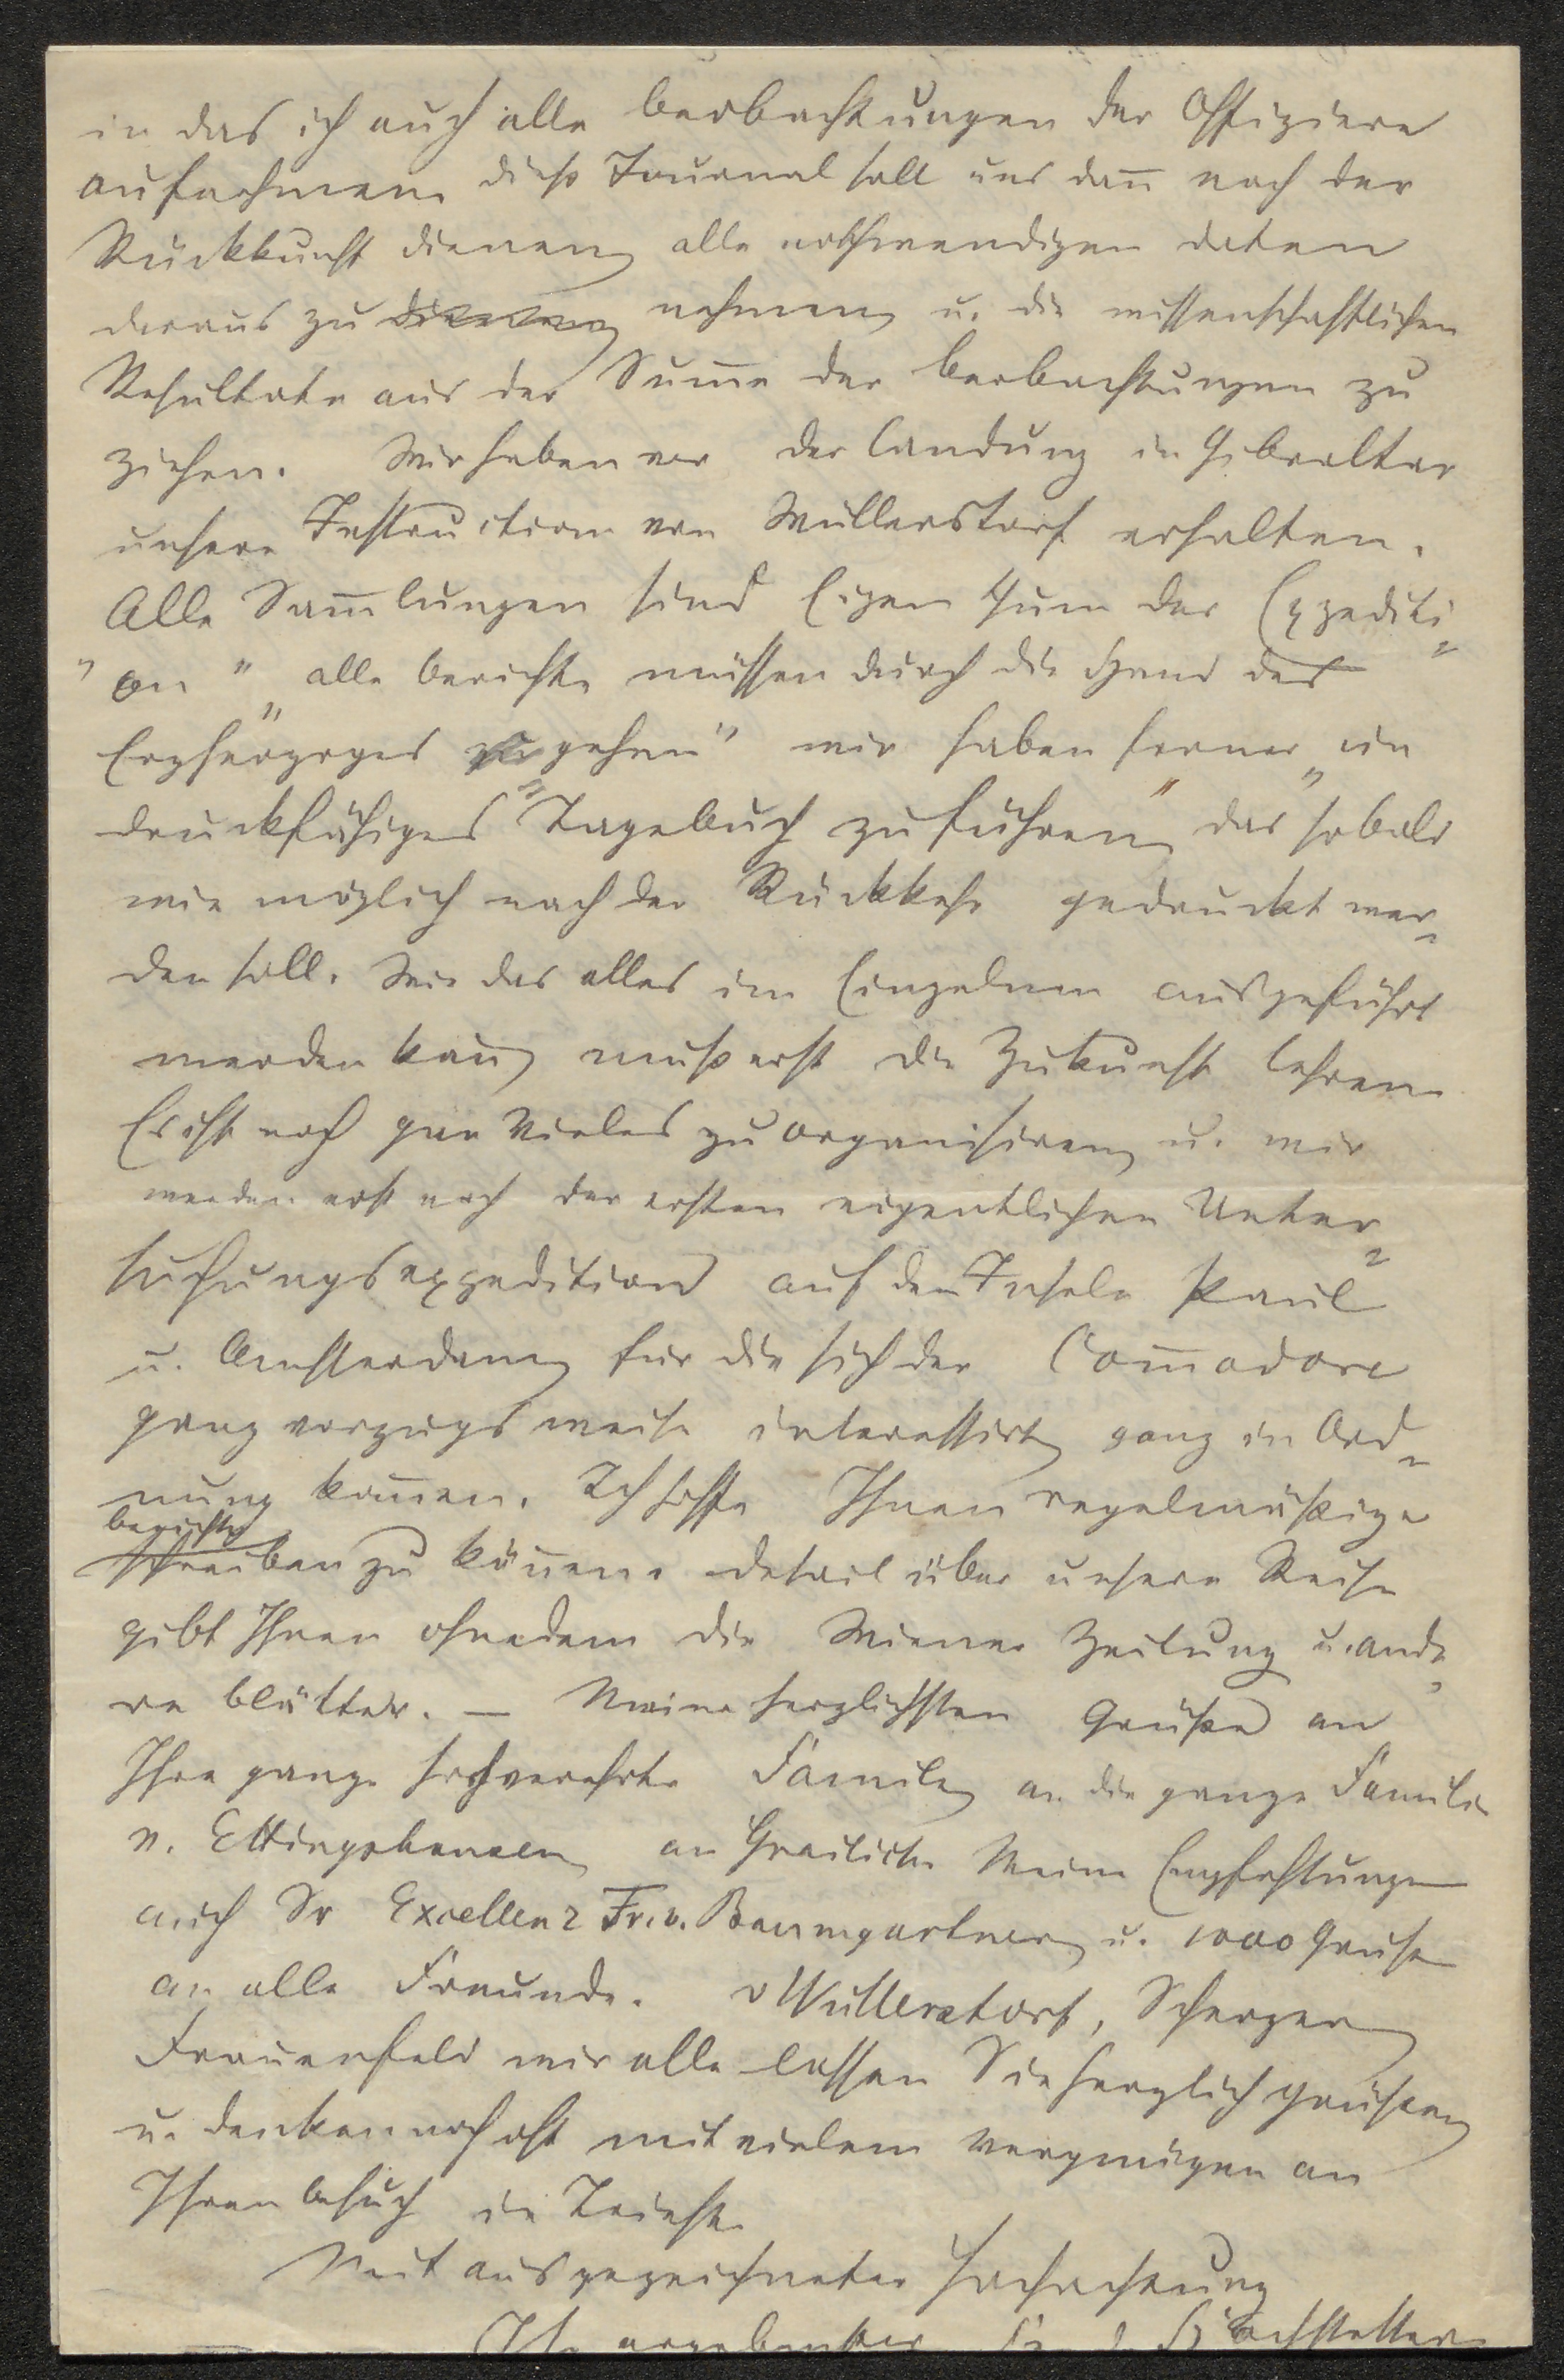 in das ich auch alle Beobachtungen der Offiziere
aufnehmen. Dieß Journal soll uns dan̄ nach der
Rückkunft dienen, alle nothwendigen Daten
daraus zu dienen, nehmen, u. die wissenschaftlichen
Resultate aus der Sum̄e der Beobachtungen zu
ziehen. Wir haben vor der Landung in Gibraltar
unsere Instruction von Wüllerstorf erhalten.
Alle Sam̄lungen sind Eigenthum der Expediti=
"on" „alle Berichte müssen durch die Hand des
Erzherzoges gehen" wir haben ferner „ein
druckfähiges" Tagebuch zu führen", das „sobald
wie möglich nach der Rückkehr gedruckt wer=
den soll. Wie das alles im Einzelnen ausgeführt
werden kan̄, muß erst die Zukunft lehren.
Es ist noch gar Vieles zu organisiren, u. wir
werden erst nach der ersten eigentlichen Unter=
suchungsexpedition auf den Inseln Paul
u. Amsterdam, für die sich der Com̄odore
ganz vorzugsweise interessirt, ganz in Ord=
nung kom̄en. Ich hoffe Ihnen regelmäßige
Berichte
schreiben zu kön̄en. Detail über unsere Reise
gibt Ihnen ohnedem die Wiener Zeitung u. ande=
re Blätter. — Meine herzlichsten Grüße an
Ihre ganze hochverehrte Familie, an die ganze Familie
v. Ettingshausen, an Grailich. Meine Empfehlungen
auch Sr Excellenz Fr. v. Baumgartner, u. 1000 Grüße
an alle Freunde. v Wüllerstorf, Scherzer,
Frauenfeld wir alle lassen Sie herzlich grüßen,
u. denken noch oft mit vielem Vergnügen an
Ihren Besuch in Triest.
Mit ausgezeichneter Hochachtung
Ihr ergebenster Hochstetter